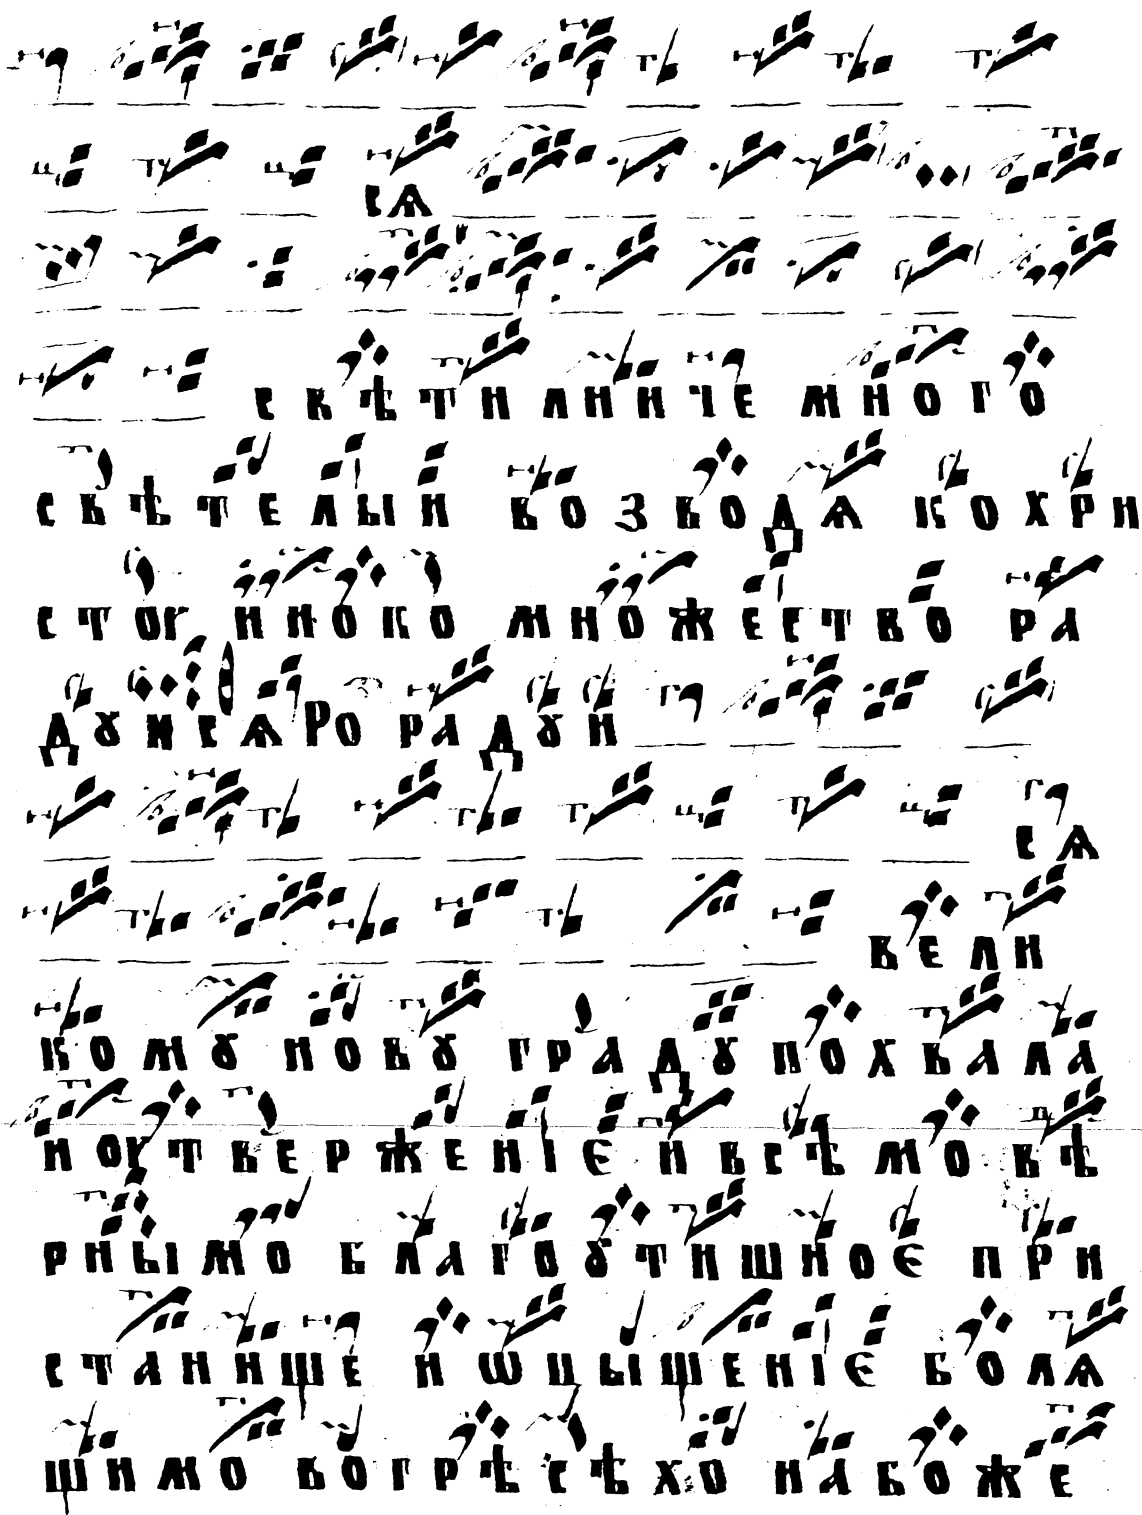 сѧ
свѣтилниче много
свѣтелыи возводѧ ко хри
стоу иноко множество ра
дꙋисѧ ро радꙋи
сѧ
вели
комꙋ новꙋ градꙋ похвала
и оутвержение и всѣмо вѣ
рнымо благоꙋтишное при
станище и ѡцыщение болѧ
щимо во грѣсѣхо на боже